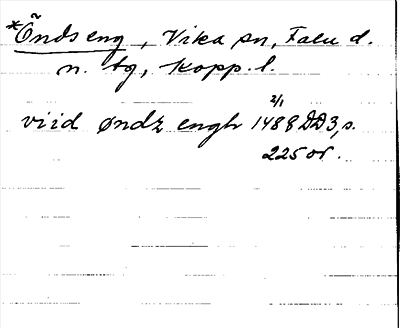 *Õndseng, Vika sn, Falu d.
n. tg, Kopp. l.
2/1
viid øndz engh 1488 DD3, s.
225 or.